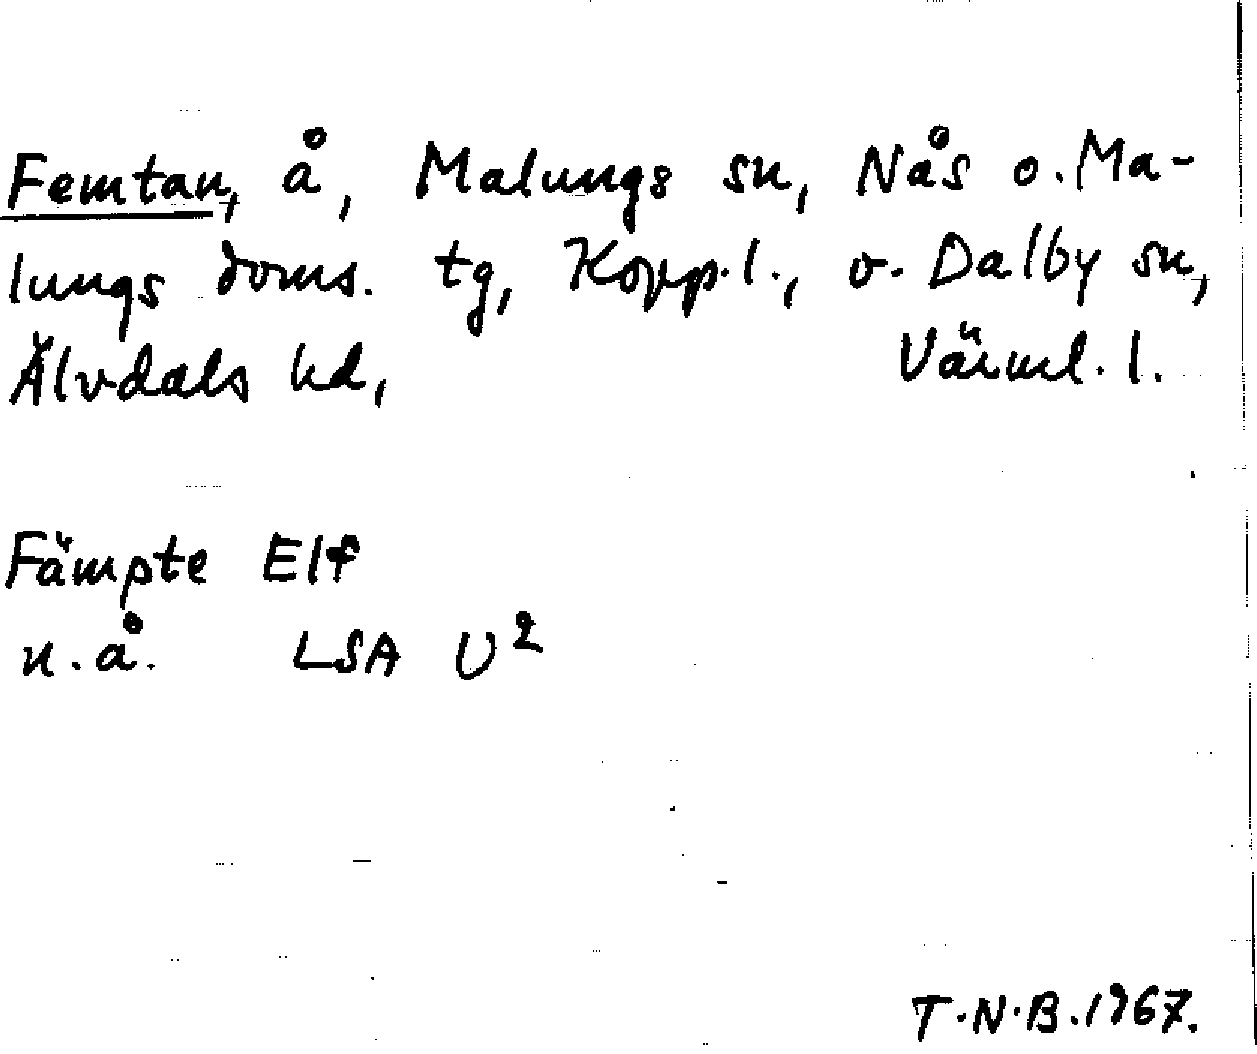 Femtan, å, Malungs sn, Nås o. Ma-
lungs doms. tg, Kopp. l., o. Dalby sn,
Älvdals hd, Värml. l.
Fämpte Elf
u. å. LSA U²
T.N.B. 1967.